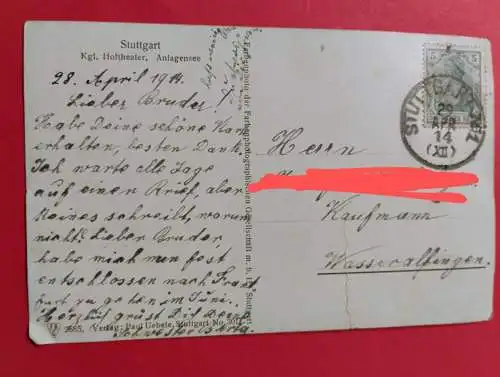 Stuttgart
Kgl. Hoftheater, Anlagensee
28. April 1914.
Lieber Bruder!
Habe Deine schöne Kart
erhalten, besten Dank.
Ich warte alle Tage
auf einen Brief, aber
Keines schreibt, warum
nicht? Lieber Bruder,
habe mich nun fest
entschlossen nach Frank
furt zu gehen im Juni.
Herzlich grüst Dich Deine
Schwester Berta.
885. Verlag: Paul Uebele, Stuttgart No.
Farbenphoto der Farbenphotographischen Gesellschaft m. b. H. Stuttgart
5 5
STUTTGART
29
APR
14
(XII)
Herrn
Kaufmann
Wasseralfingen.